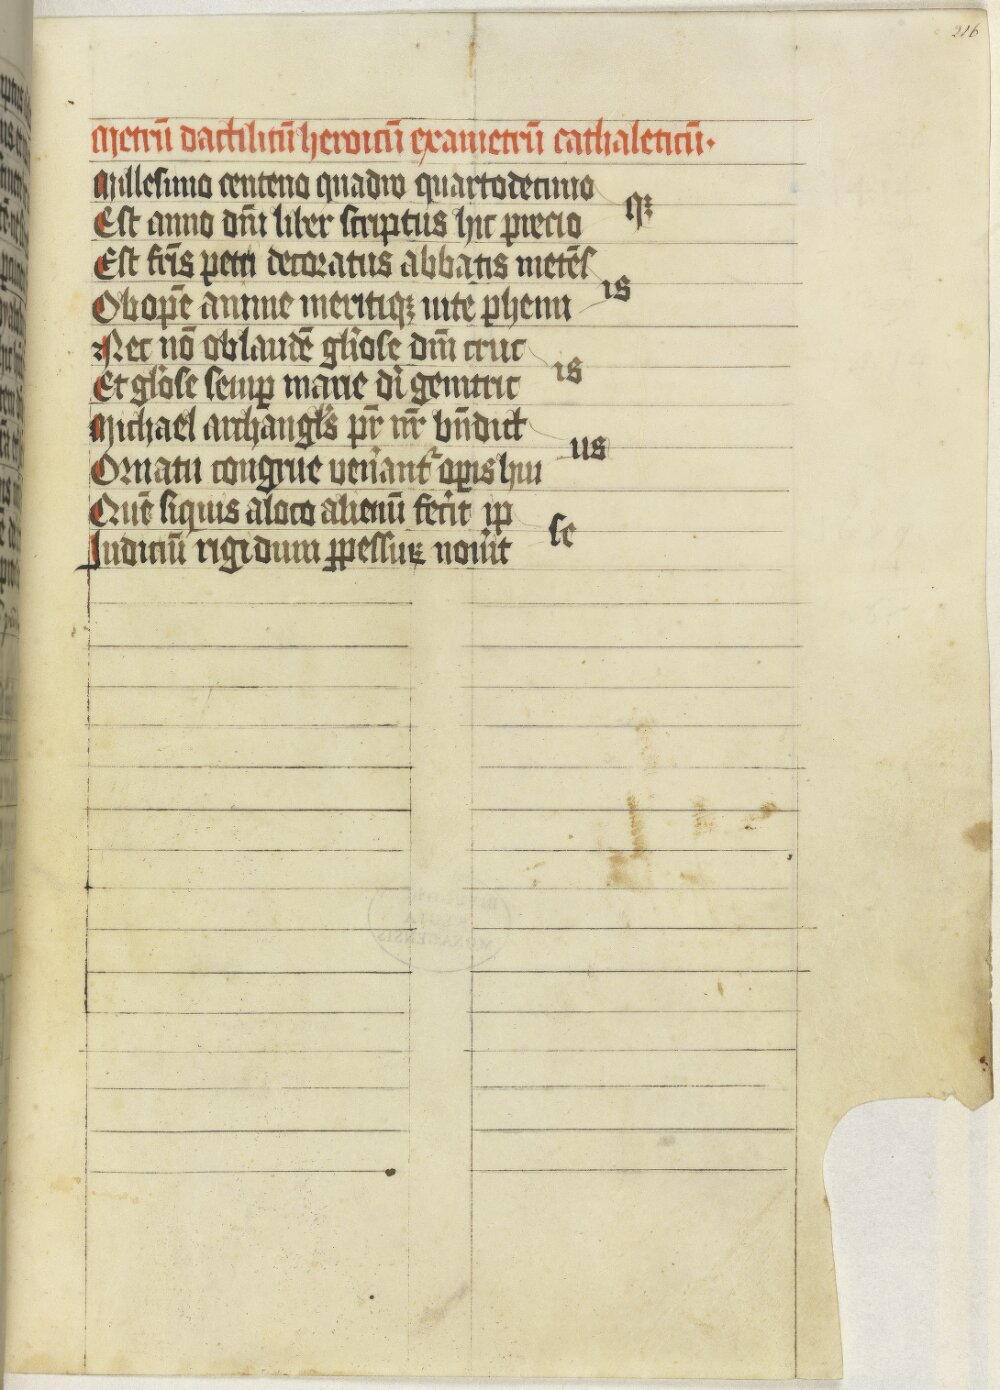 226
Metrū dactilicū heroicū exametrū cathaleticū.
Millesimo centeno quadro quartodecimo
qꝫ
Est anno dn̄i liber scriptus hic precio
Est fr̄is petri decoratus abbatis metēs
is
Ob opē anime meritiqꝫ uite phenn
Nec nō oblaudē gl̓iose dn̄i cruc
is
Et gl̓ose semꝑ marie di genitric
Michael archāngl̓s pr̄ nr̄ bn̄dict
us
Ornatu congrue veniant̓ opis huι
Quē siquis a loco alienū fecit ip
se
Judiciū rigidum ꝑpessuꝝ nouit